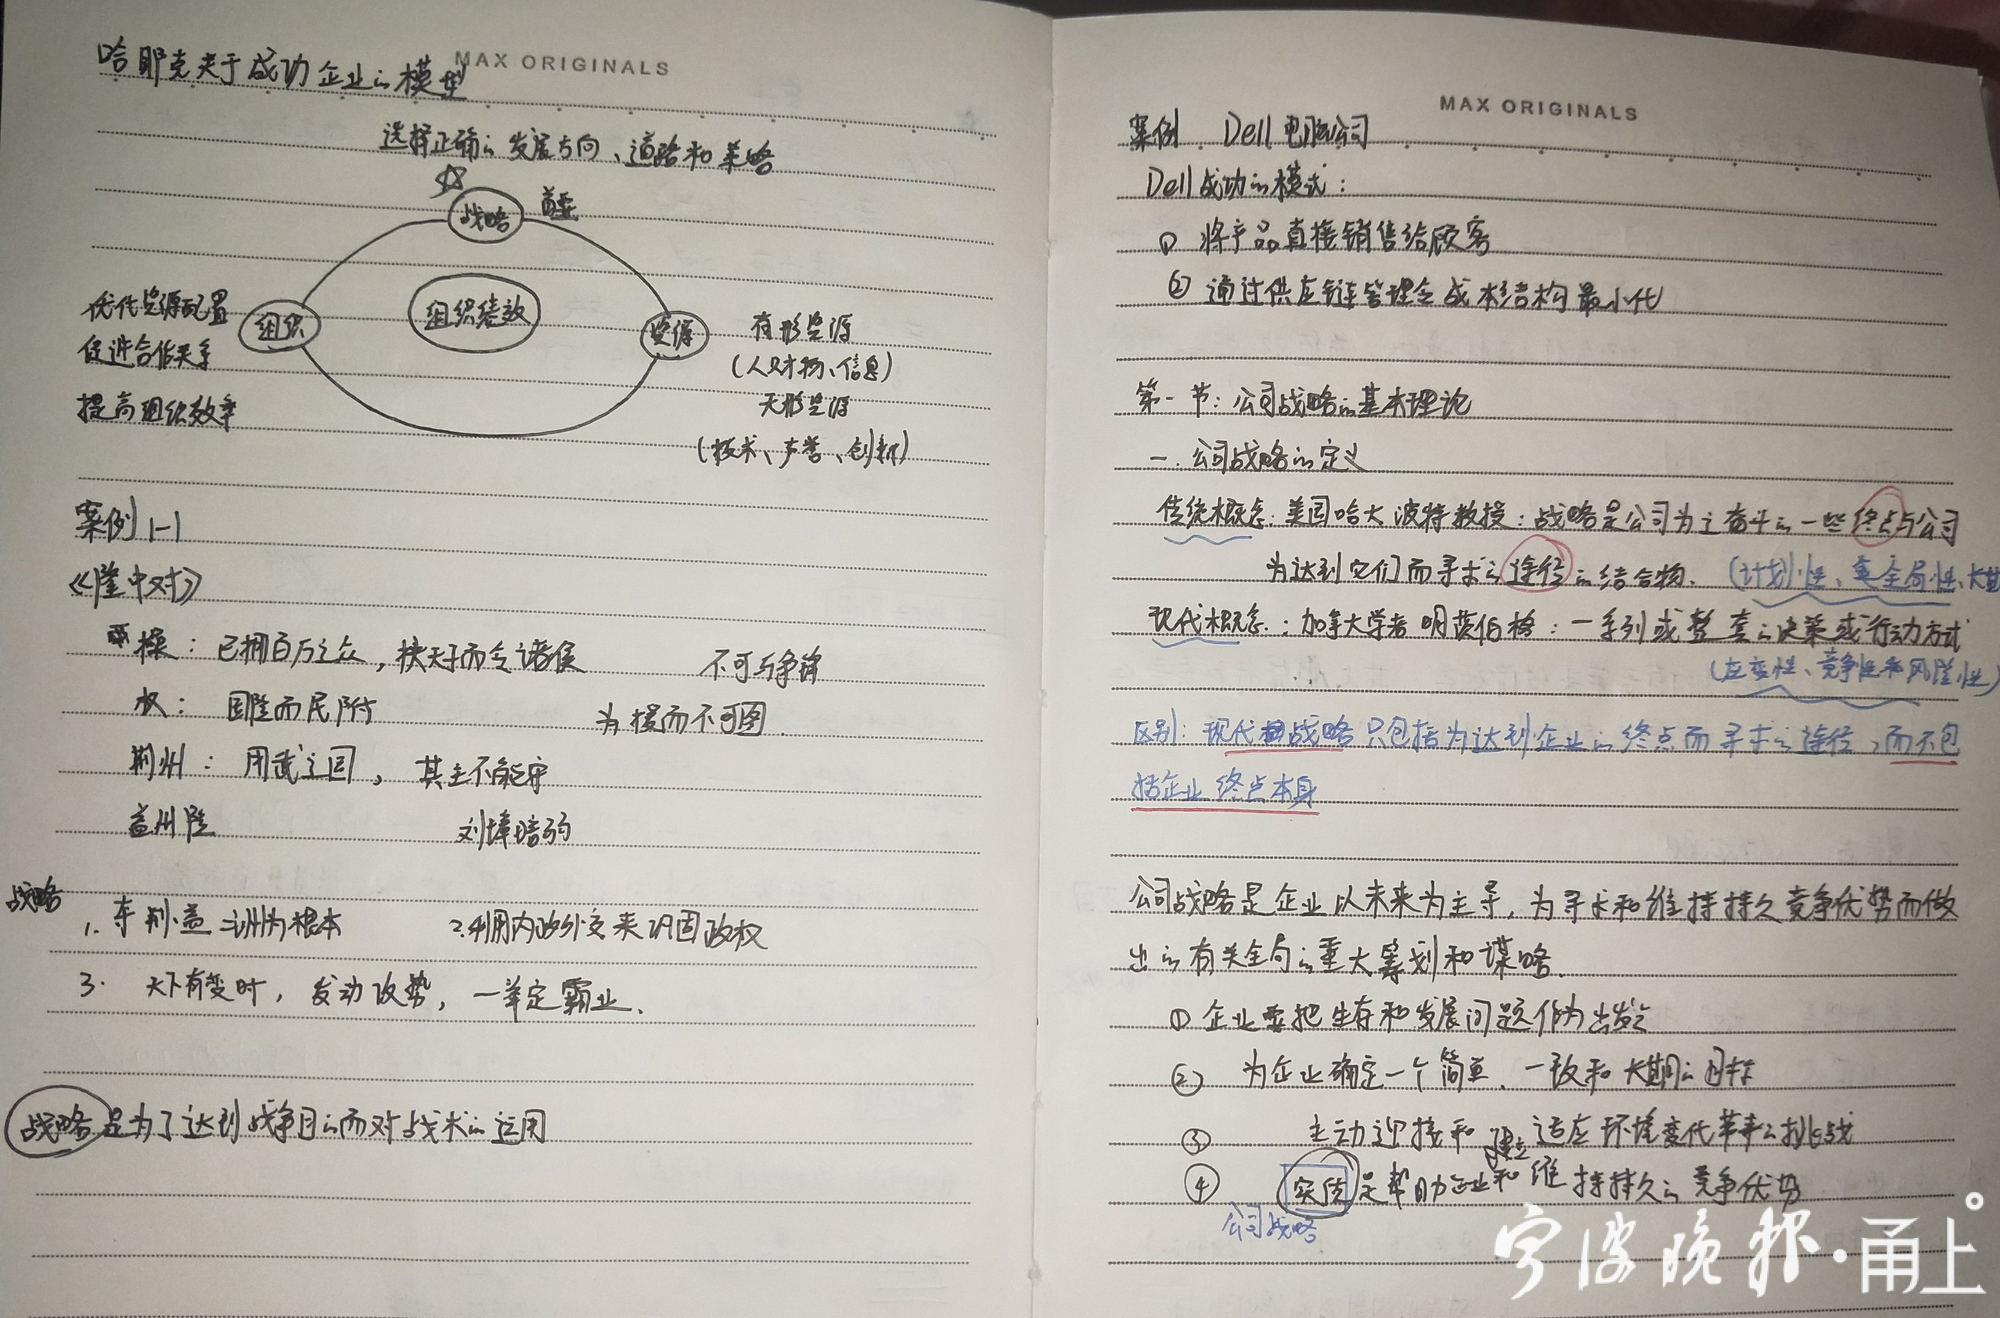 MAX ORIGINALS
哈耶克关于成功企业的模型
选择正确的发展方向、道路和策略
战略 首要
优化资源配置
促进合作关系
提高组织效率
组织
组织绩效
资源
有形资源
(人财物、信息)
无形资源
(技术、声誉、创新)
案例1-1
《隆中对》
操：已拥百万之众，挟天子而令诸侯 不可与争锋
权： 国险而民附 为援而不可图
荆州： 用武之国， 其主不能守
益州险 刘璋暗弱
战略
1. 荆、益二州为根本 2.利用内政外交来巩固政权
3. 天下有变时，发动攻势，一举定霸业.
战略是为了达到战争目的而对战术的运用
MAX ORIGINALS
案例 Dell电脑公司
Dell成功的模式：
① 将产品直接销售给顾客
② 通过供应链管理令成本结构最小化
第一节：公司战略的基本理论
一. 公司战略的定义
传统概念：美国哈大 波特教授：战略是公司为之奋斗的一些终点与公司
为达到它们而寻求之途径的结合物.
(计划性、全局性、长期
现代概念：加拿大学者 明茨伯格：一系列或整套的决策或行动方式
(应变性、竞争性和风险性)
区别：现代战略只包括为达到企业的终点而寻求之途径，而不包
括企业终点本身
公司战略是企业以未来为主导，为寻求和维持持久竞争优势而做
出的有关全局的重大筹划和谋略.
① 企业要把生存和发展问题作为出发
② 为企业确定一个简单、一致和长期的目标
③ 主动迎接和适应环境变化带来的挑战
④ 实质是帮助企业建立和维持持久的竞争优势
公司战略
宁波晚报·甬上